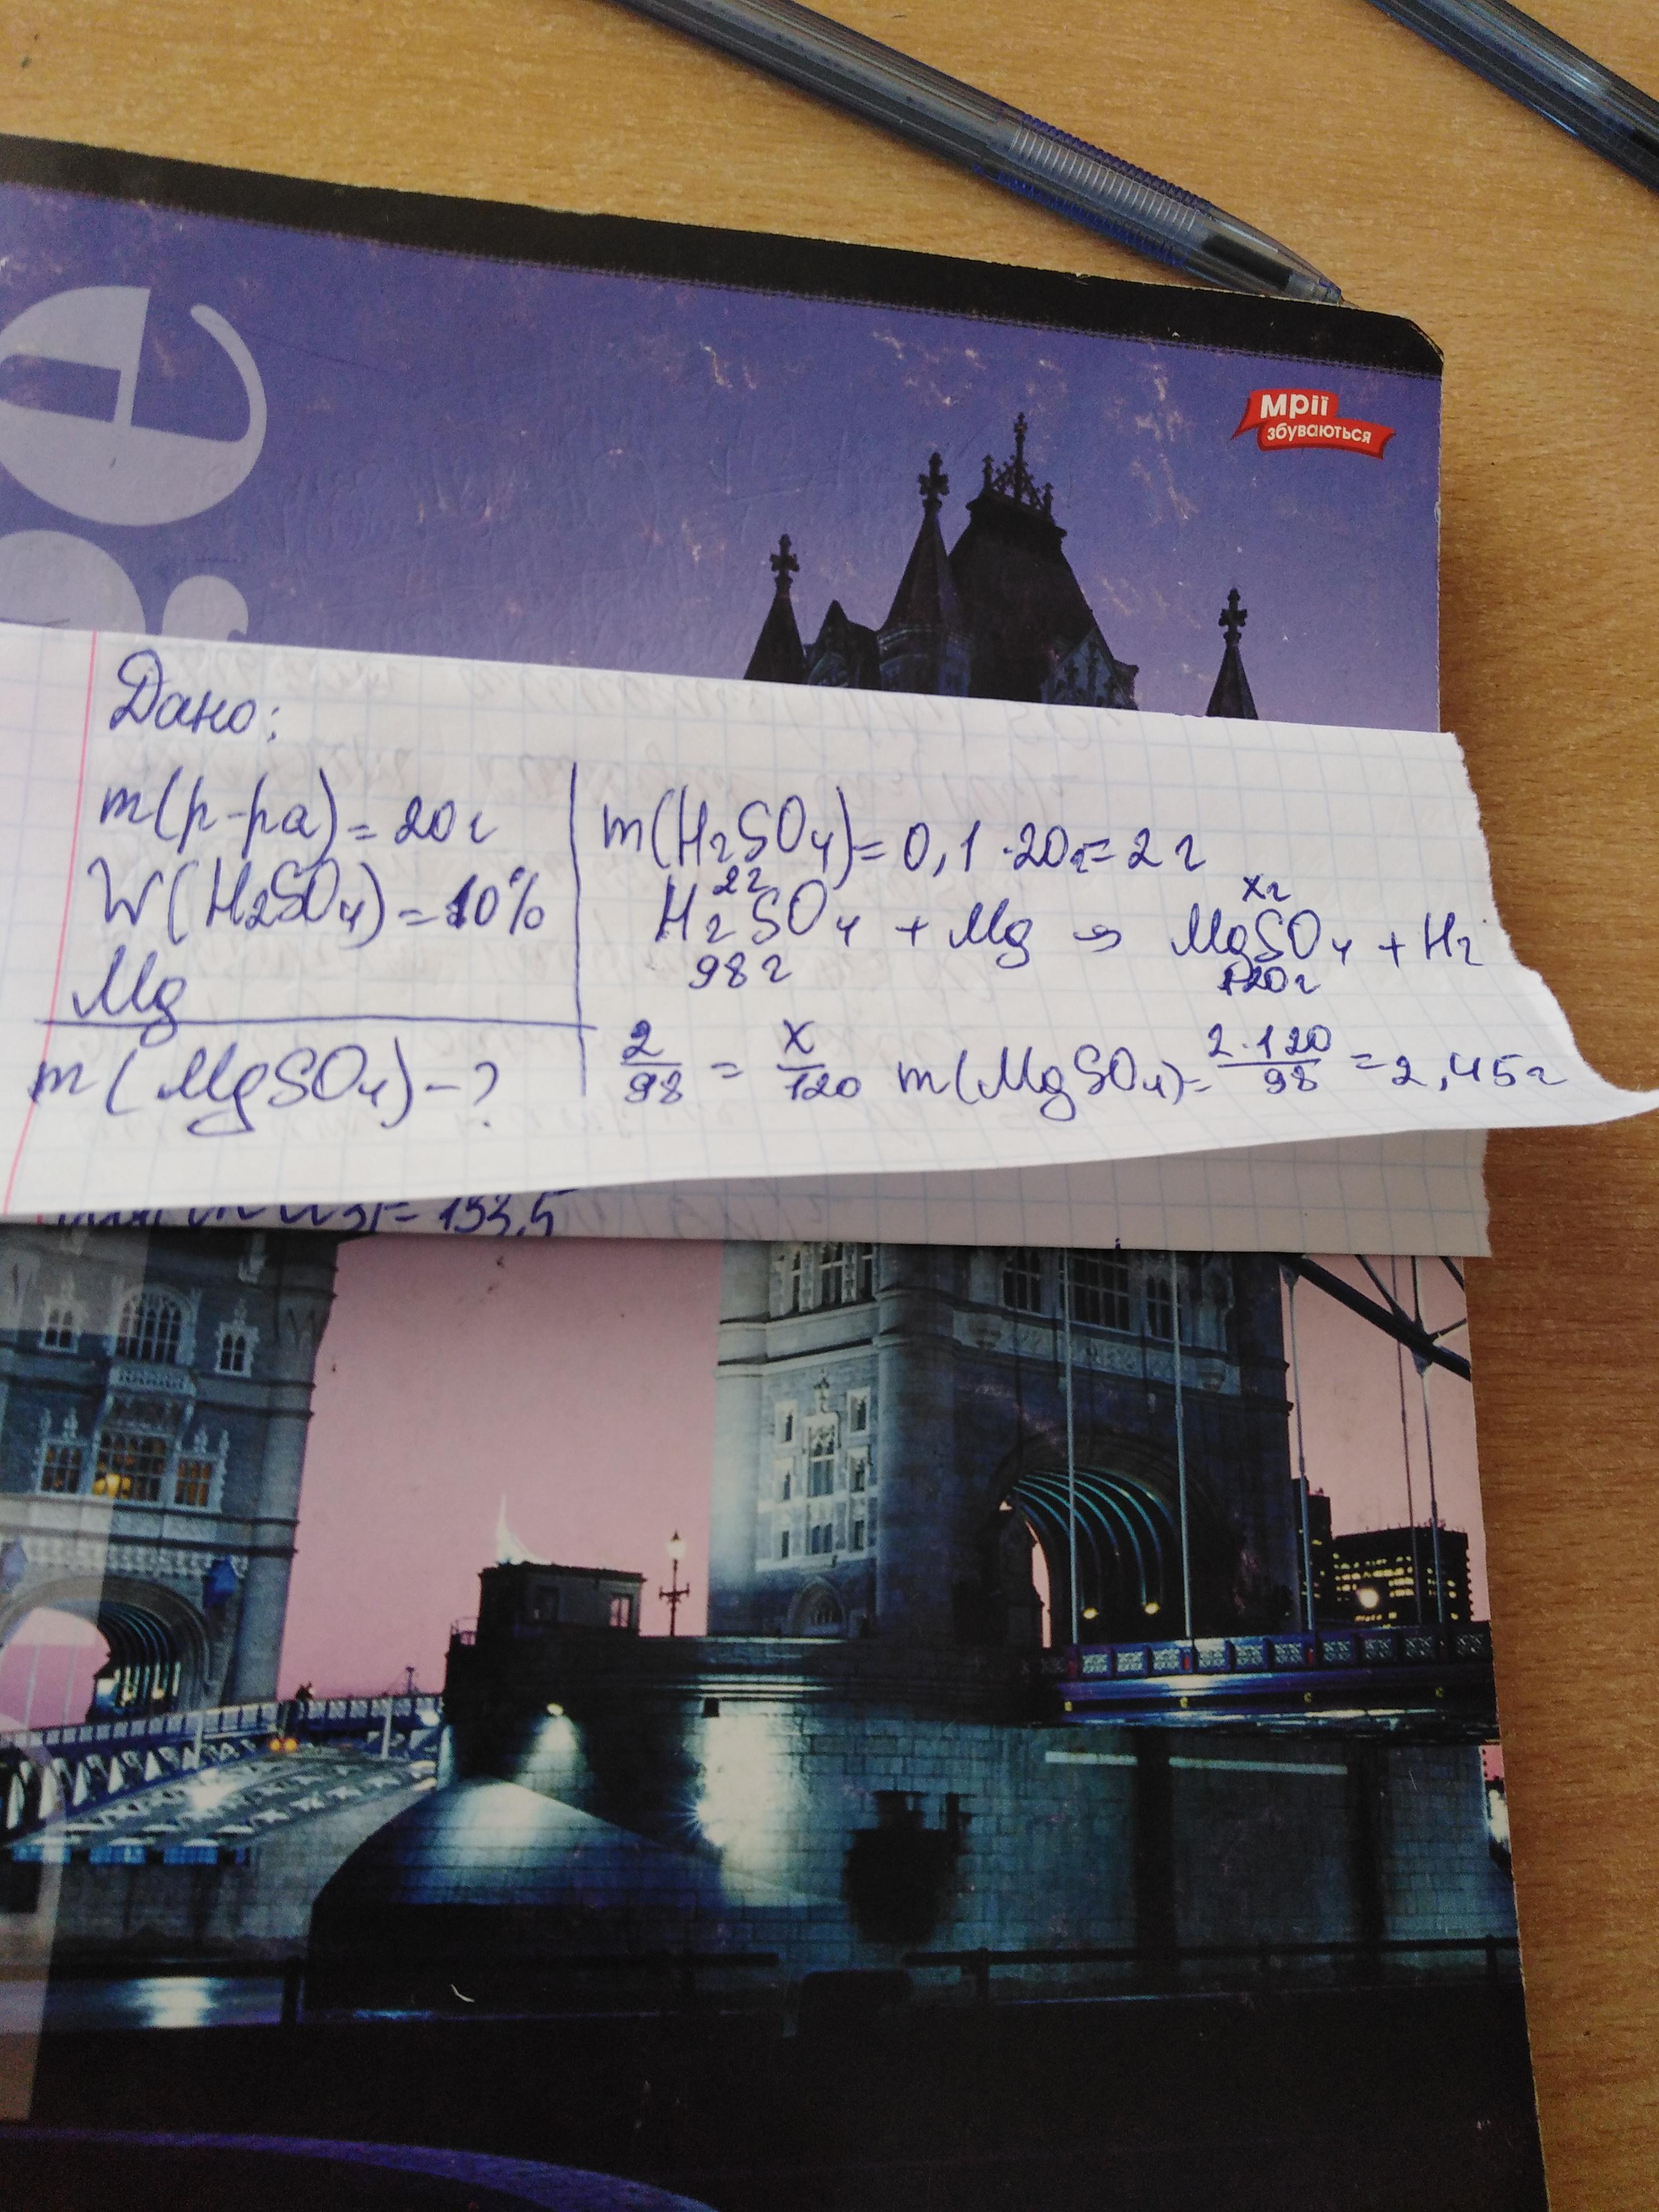 Мрії
збуваються
Дано:
m(р-ра) = 20г
W(H₂SO₄) = 10%
Mg
m(MgSO₄) - ?
m(H₂SO₄) = 0,1 · 20г = 2г
2г xг
H₂SO₄ + Mg → MgSO₄ + H₂
98г 120г
2/98 = x/120 m(MgSO₄) = 2·120/98 = 2,45г
= 153,5